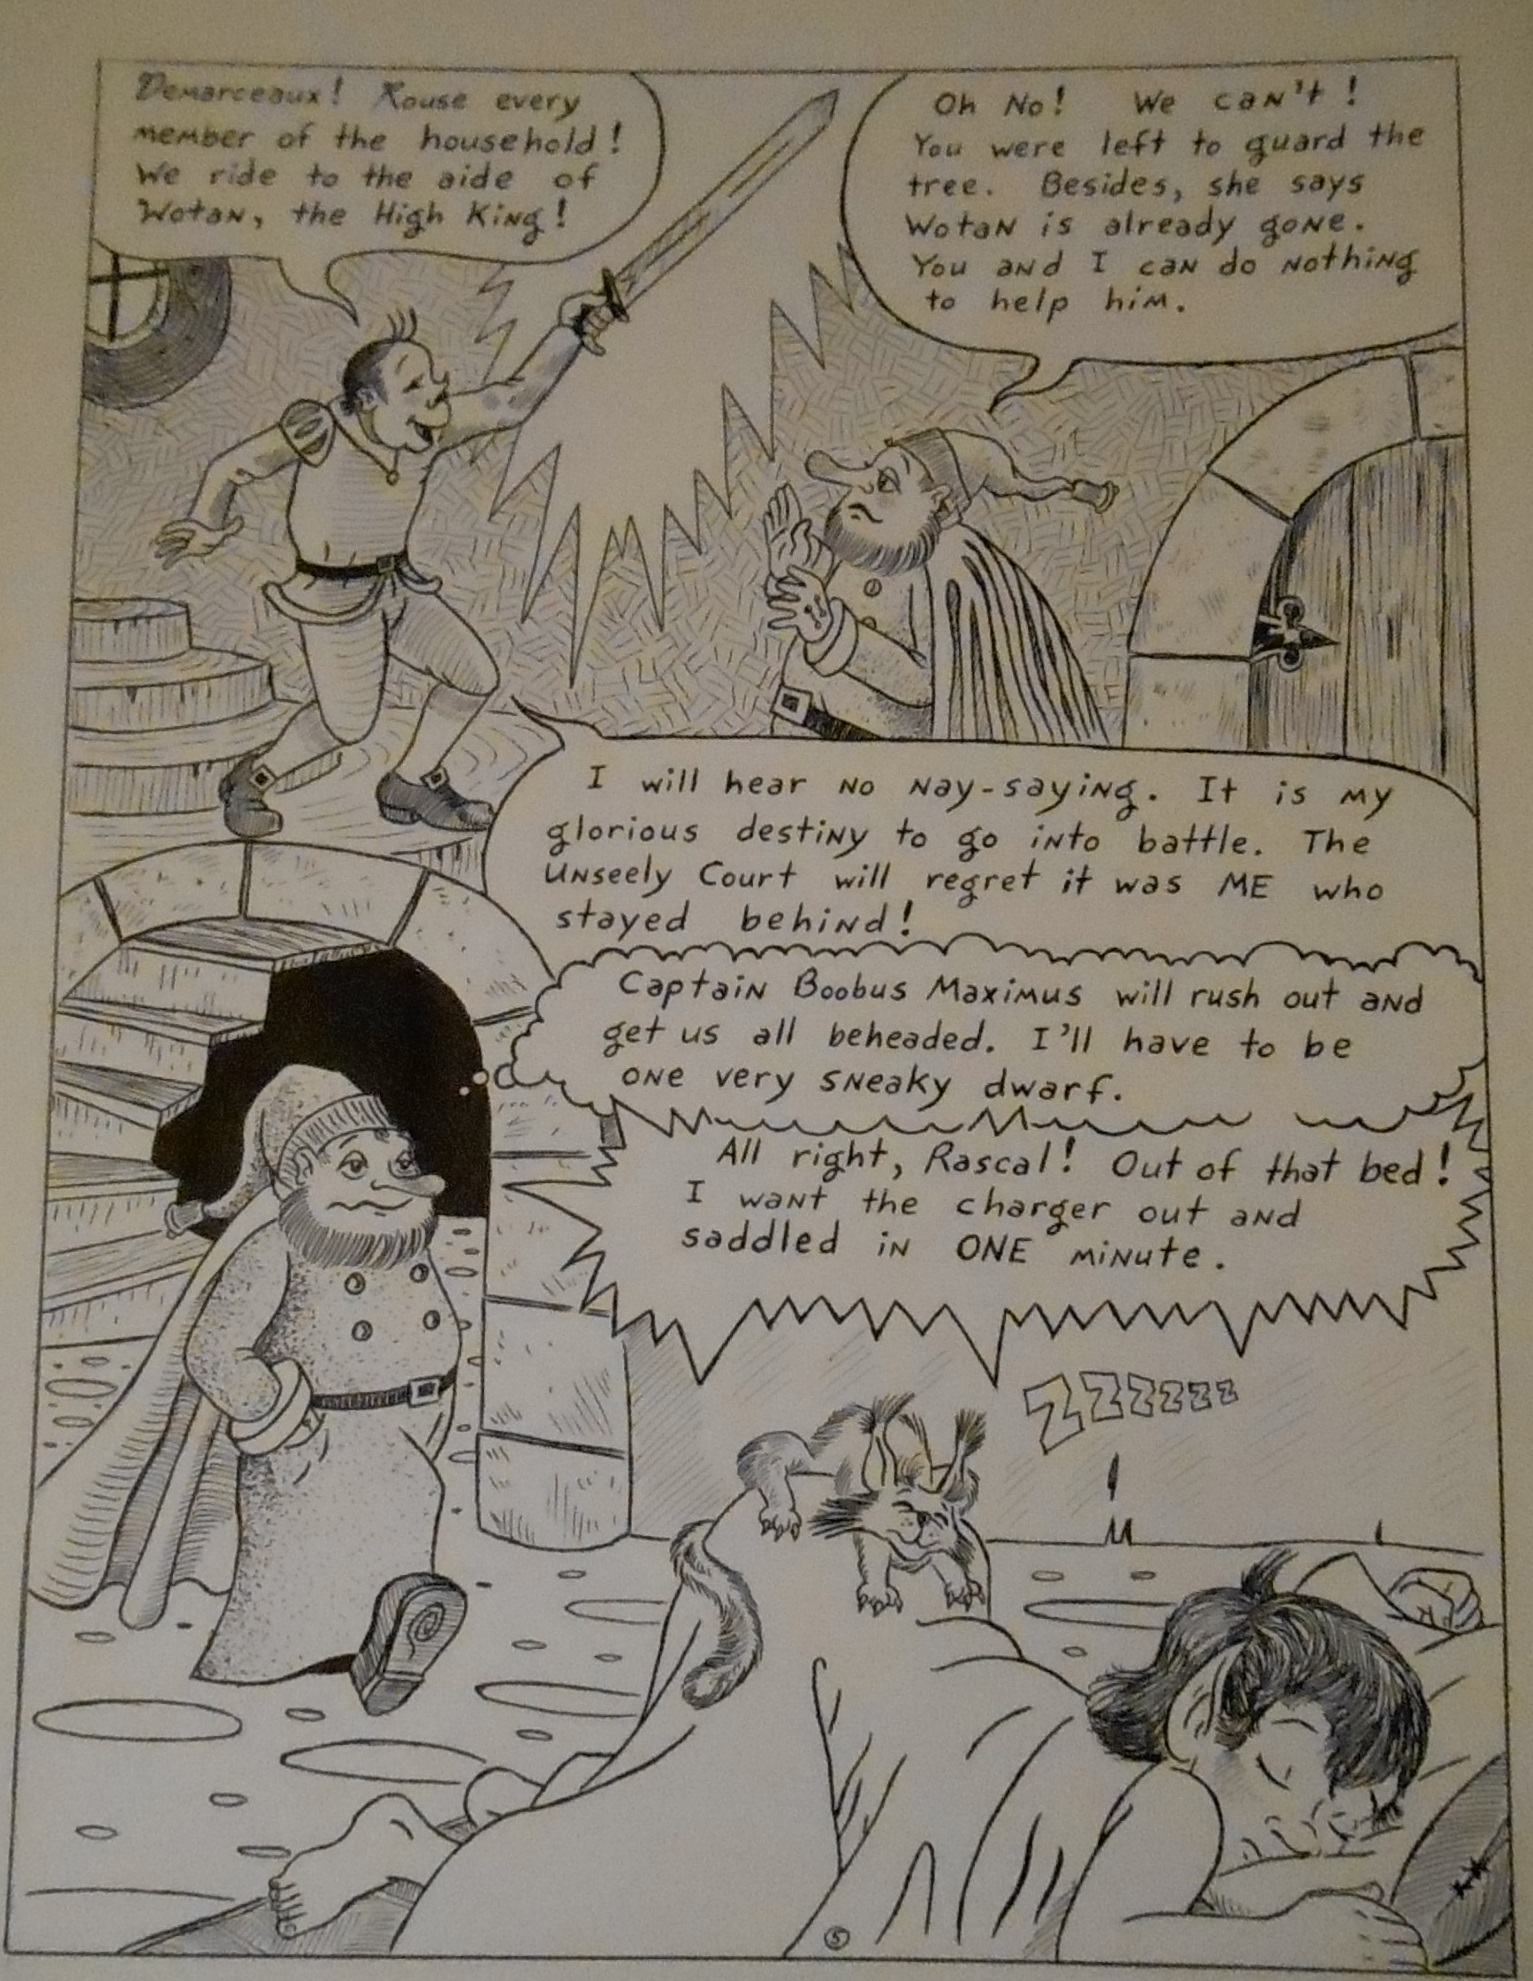 Demarceaux! Rouse every
member of the household!
We ride to the aide of
Wotan, the High King!
Oh No! We can't!
You were left to guard the
tree. Besides, she says
Wotan is already gone.
You and I can do nothing
to help him.
I will hear no nay-saying. It is my
glorious destiny to go into battle. The
Unseely Court will regret it was ME who
stayed behind!
Captain Boobus Maximus will rush out and
get us all beheaded. I'll have to be
one very sneaky dwarf.
All right, Rascal! Out of that bed!
I want the charger out and
saddled in ONE minute.
ZZZZZZZ
5